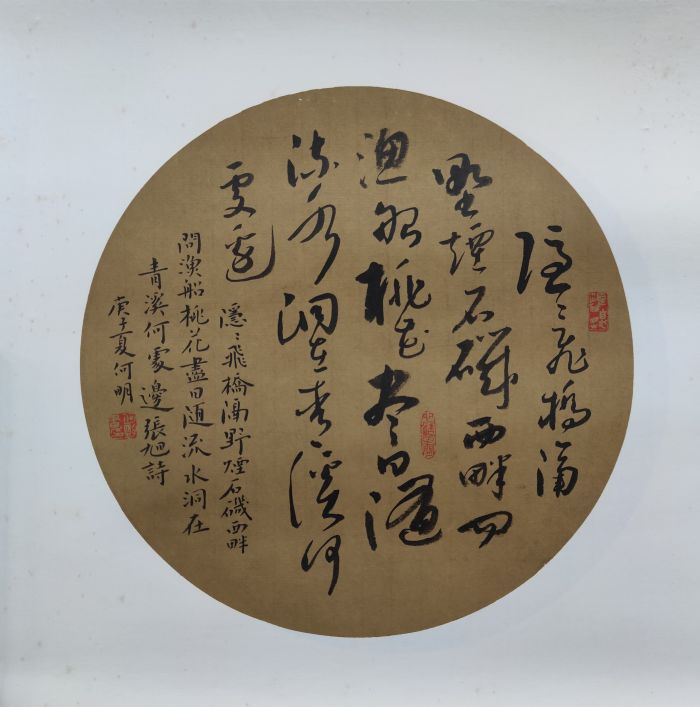 隐〻飛橋隔
野煙石磯西畔问
渔船桃花尽日随
流水洞在青溪何
處邊
隱〻飛橋隔野煙石磯西畔
問漁船桃花盡日随流水洞在
青溪何處邊張旭詩
庚子夏何明